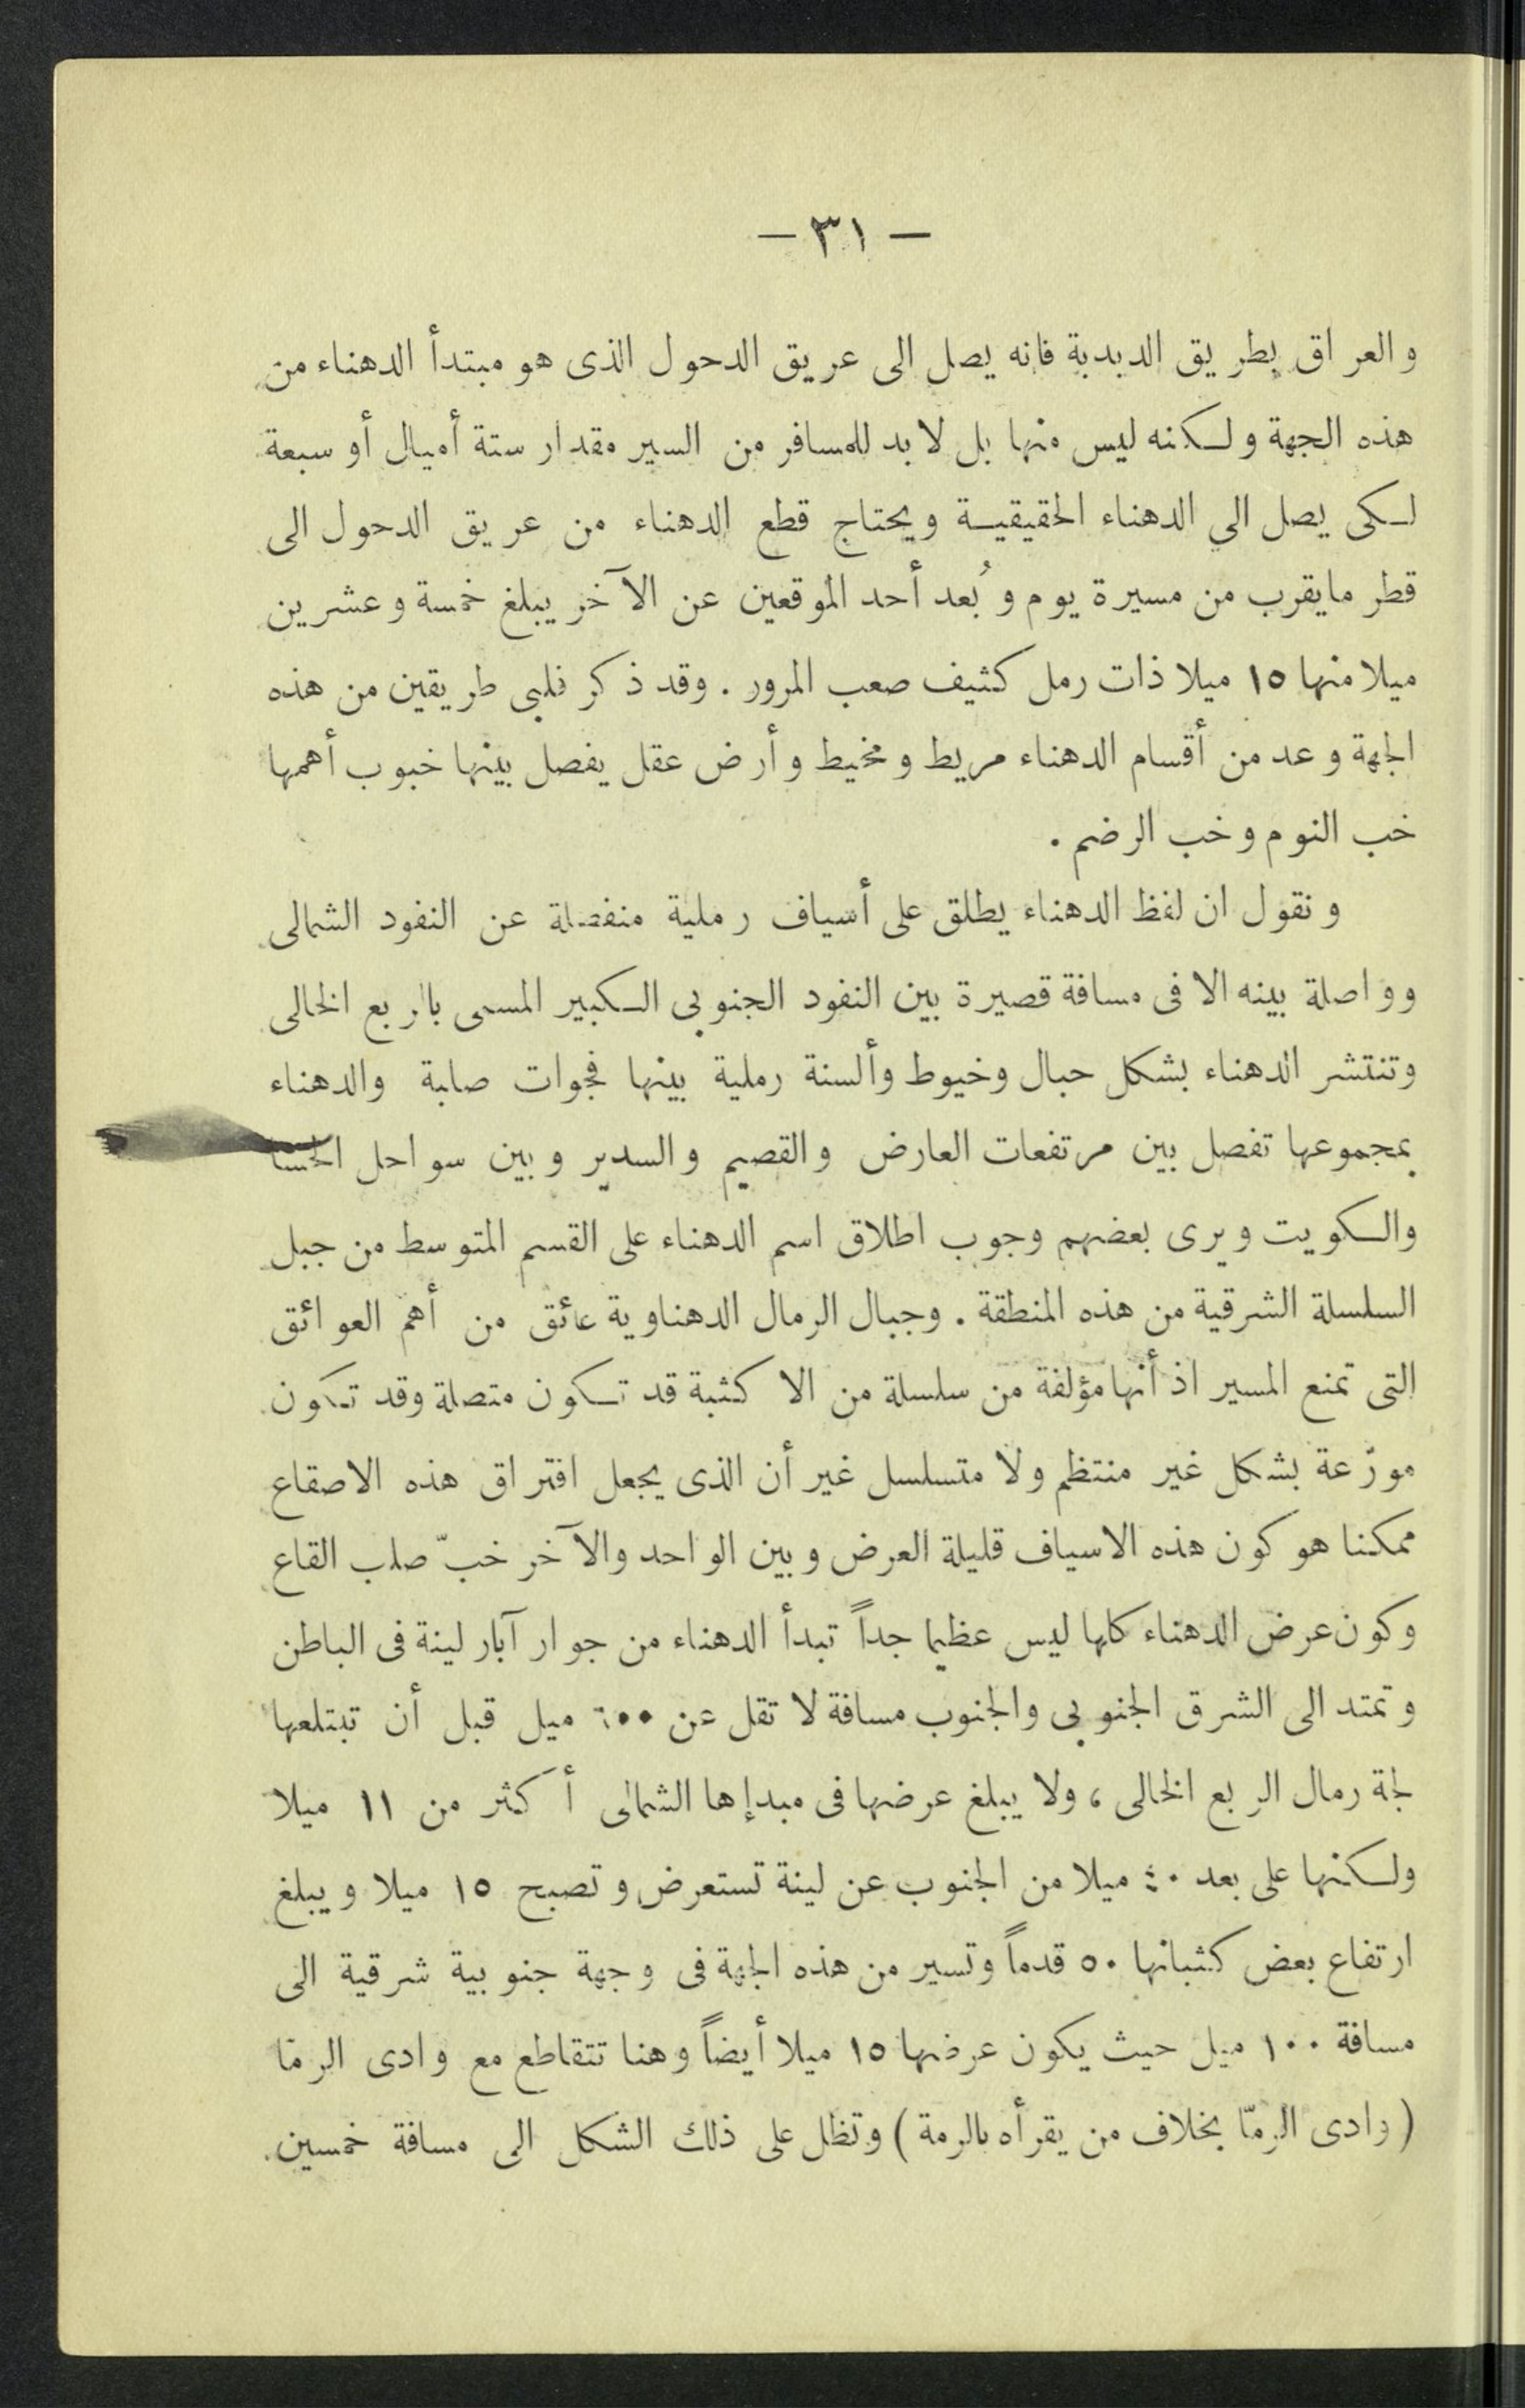 — ٣١ —
والعراق بطريق الدبدبة فانه يصل الى عريق الدحول الذى هو مبتدأ الدهناء من
هذه الجهة ولكنه ليس منها بل لا بد للمسافر من السير مقدار ستة أميال أو سبعة
لكى يصل الي الدهناء الحقيقية ويحتاج قطع الدهناء من عريق الدحول الى
قطر مايقرب من مسيرة يوم وبُعد أحد الموقعين عن الآخر يبلغ خمسة وعشرين
ميلا منها ١٥ ميلا ذات رمل كثيف صعب المرور . وقد ذكر فلبى طريقين من هذه
الجهة وعد من أقسام الدهناء مريط ومخيط وأرض عقل يفصل بينها خبوب أهمها
خب النوم وخب الرضم .
ونقول ان لفظ الدهناء يطلق على أسياف رملية منفصلة عن النفود الشمالى
وواصلة بينه الا فى مسافة قصيرة بين النفود الجنوبى الكبير المسمى بالربع الخالى
وتنتشر الدهناء بشكل حبال وخيوط وألسنة رملية بينها فجوات صلبة والدهناء
بمجموعها تفصل بين مرتفعات العارض والقصيم والسدير وبين سواحل الحسا
والكويت ويرى بعضهم وجوب اطلاق اسم الدهناء على القسم المتوسط من جبل
السلسلة الشرقية من هذه المنطقة . وجبال الرمال الدهناوية عائق من أهم العوائق
التى تمنع المسير اذ أنها مؤلفة من سلسلة من الاكثبة قد تكون متصلة وقد تكون
موزّعة بشكل غير منتظم ولا متسلسل غير أن الذى يجعل افتراق هذه الاصقاع
ممكنا هو كون هذه الاسياف قليلة العرض وبين الواحد والآخر خبّ صلب القاع
وكون عرض الدهناء كلها ليس عظيما جداً تبدأ الدهناء من جوار آبار لينة فى الباطن
وتمتد الى الشرق الجنوبى والجنوب مسافة لا تقل عن ٦٠٠ ميل قبل أن تبتلعها
لجة رمال الربع الخالى ، ولا يبلغ عرضها فى مبدإها الشمالى أكثر من ١١ ميلا
ولكنها على بعد ٤٠ ميلا من الجنوب عن لينة تستعرض وتصبح ١٥ ميلا ويبلغ
ارتفاع بعض كثبانها ٥٠ قدماً وتسير من هذه الجهة فى وجهة جنوبية شرقية الى
مسافة ١٠٠ ميل حيث يكون عرضها ١٥ ميلا أيضاً وهنا تتقاطع مع وادى الرمّا
( وادى الرمّا بخلاف من يقرأه بالرمة ) وتظل على ذلك الشكل الى مسافة خمسين